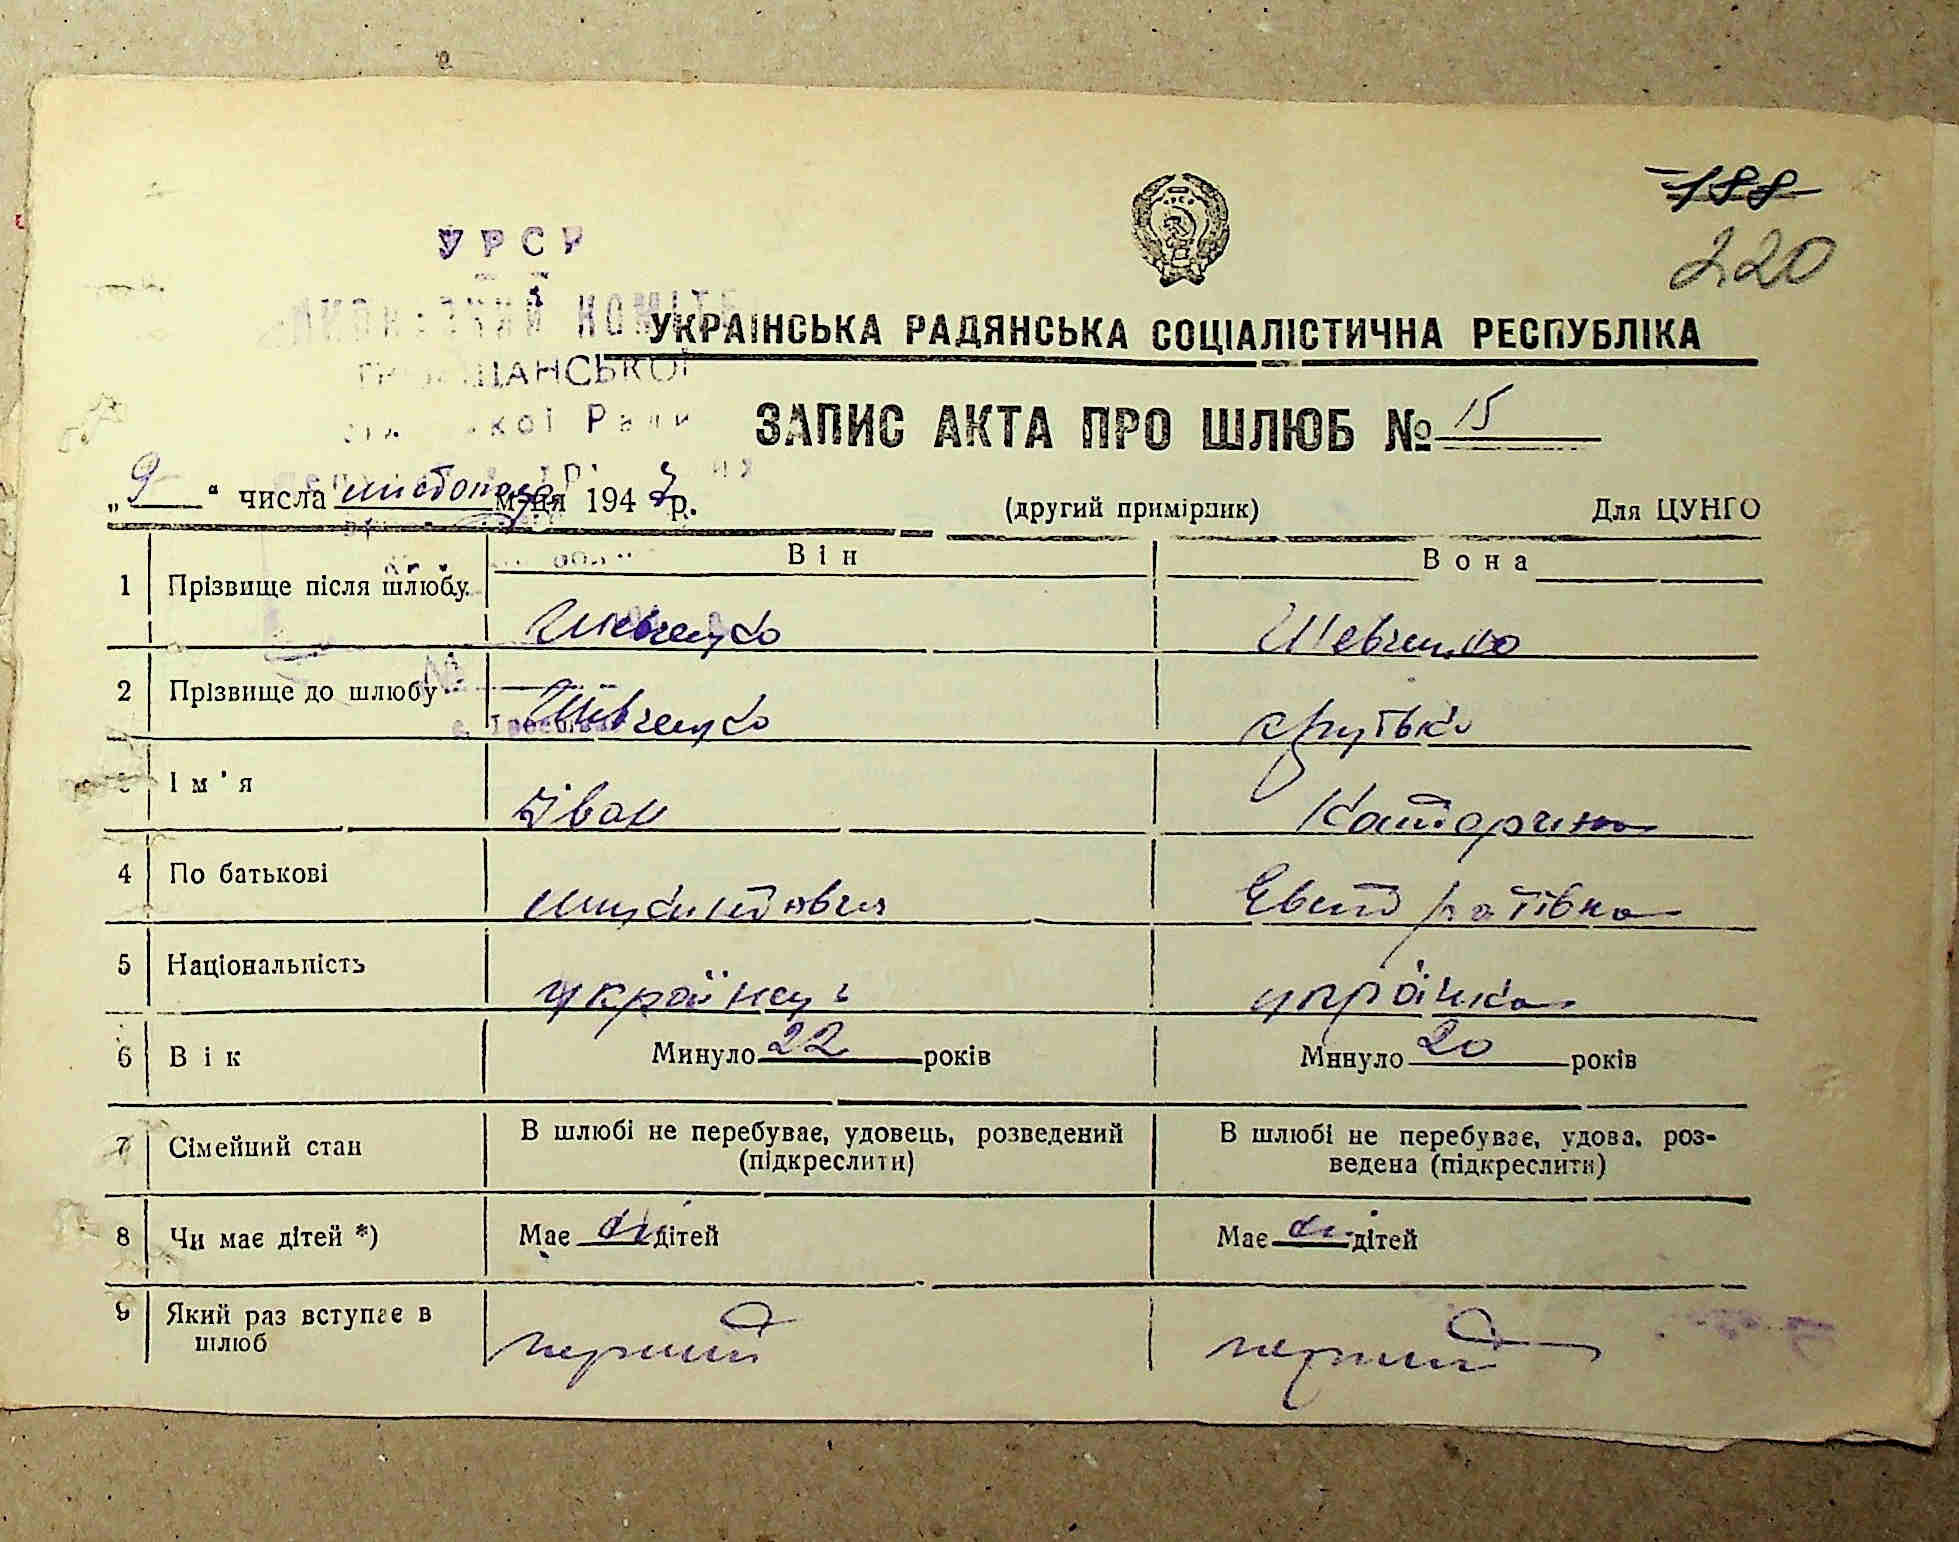 188
220
УРСР
УКРАЇНСЬКА РАДЯНСЬКА СОЦІАЛІСТИЧНА РЕСПУБЛІКА
ЗАПИС АКТА ПРО ШЛЮБ № 15
„9“ числа листопада м-ця 1947 р. (другий примірник) Для ЦУНГО
Він Вона
1 Прізвище після шлюбу. Шевченко Шевченко
2 Прізвище до шлюбу Шевченко
3 Ім'я Іван Катарина
4 По батькові Евстратівна
5 Національність українець українка
6 Вік Минуло 22 років Минуло 20 років
7 Сімейний стан В шлюбі не перебуває, удовець, розведений В шлюбі не перебуває, удова, роз-
(підкреслити) ведена (підкреслити)
8 Чи має дітей *) Має дітей Має дітей
9 Який раз вступає в
шлюб перший перший